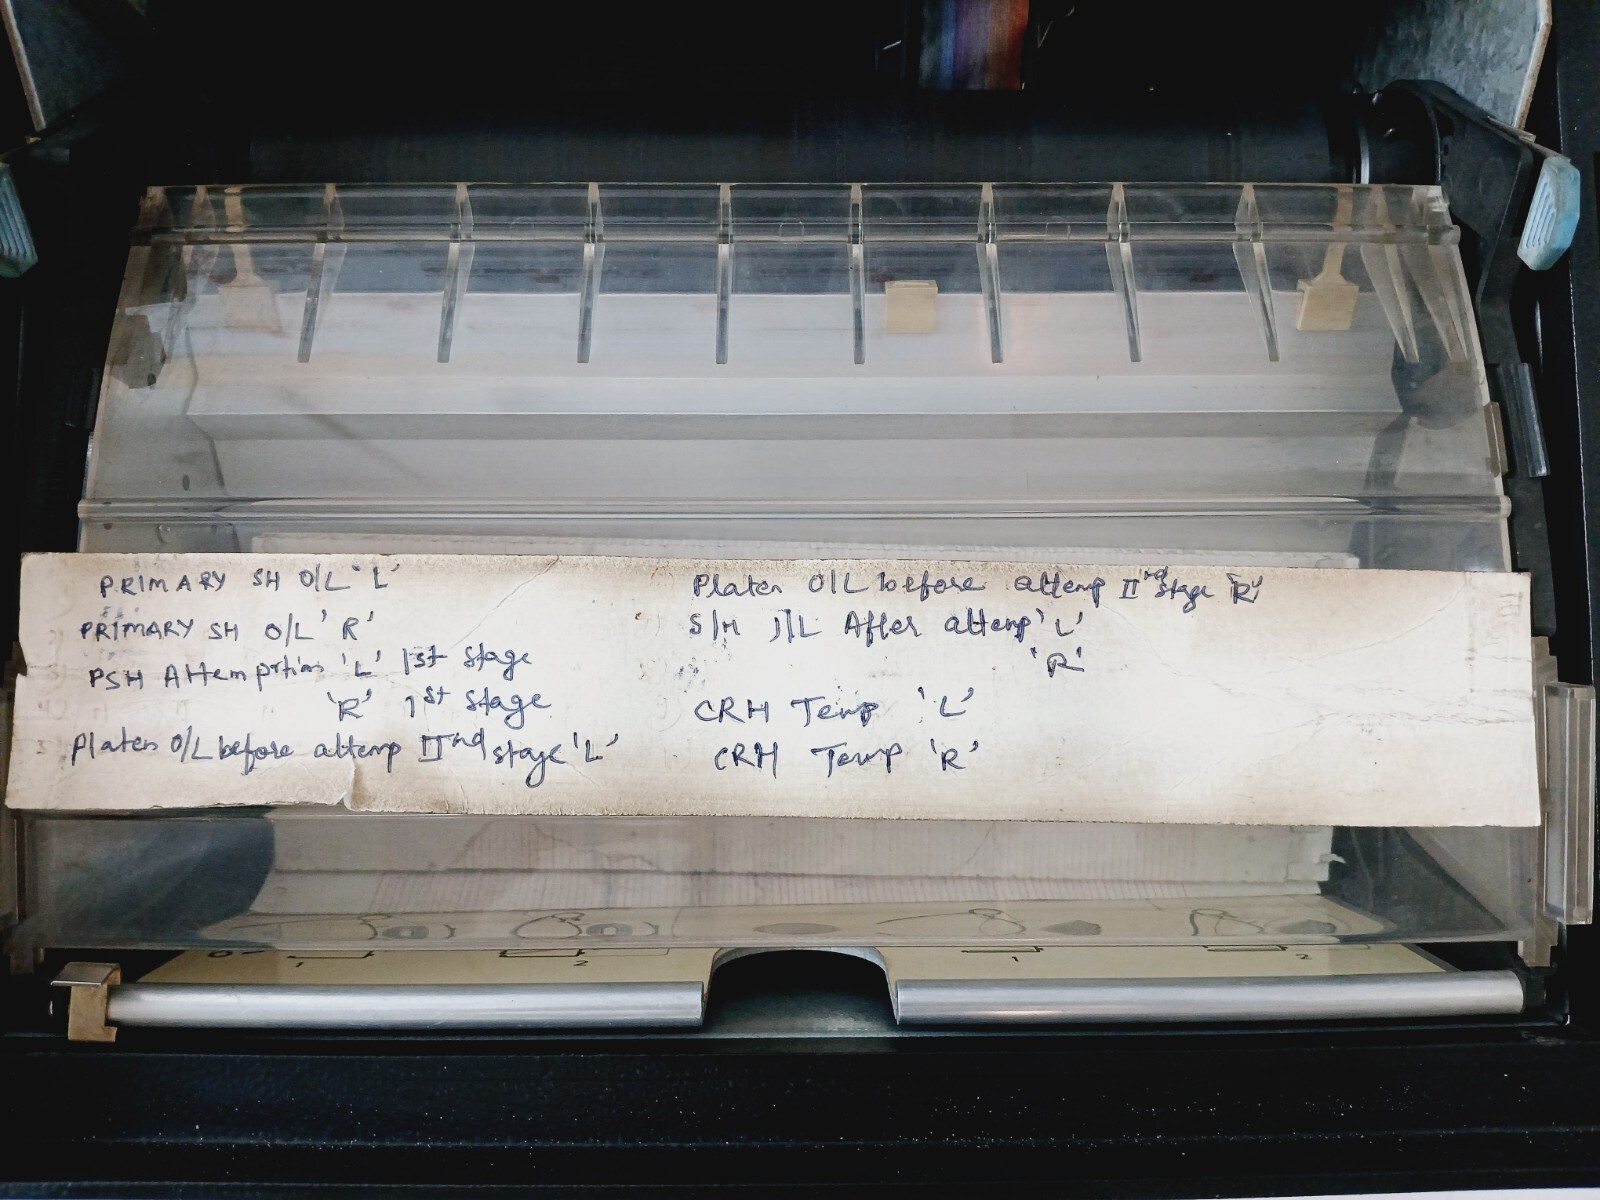 PRIMARY SH O/L 'L'
PRIMARY SH O/L 'R'
PSH Attemprtion 'L' 1st Stage
'R' 1st Stage
Platen O/L before attemp IInd stage 'L'
Platen O/L before attemp IInd stage 'R'
S/H After attemp 'L'
'R'
CRH Temp 'L'
CRH Temp 'R'
1
2
1
2